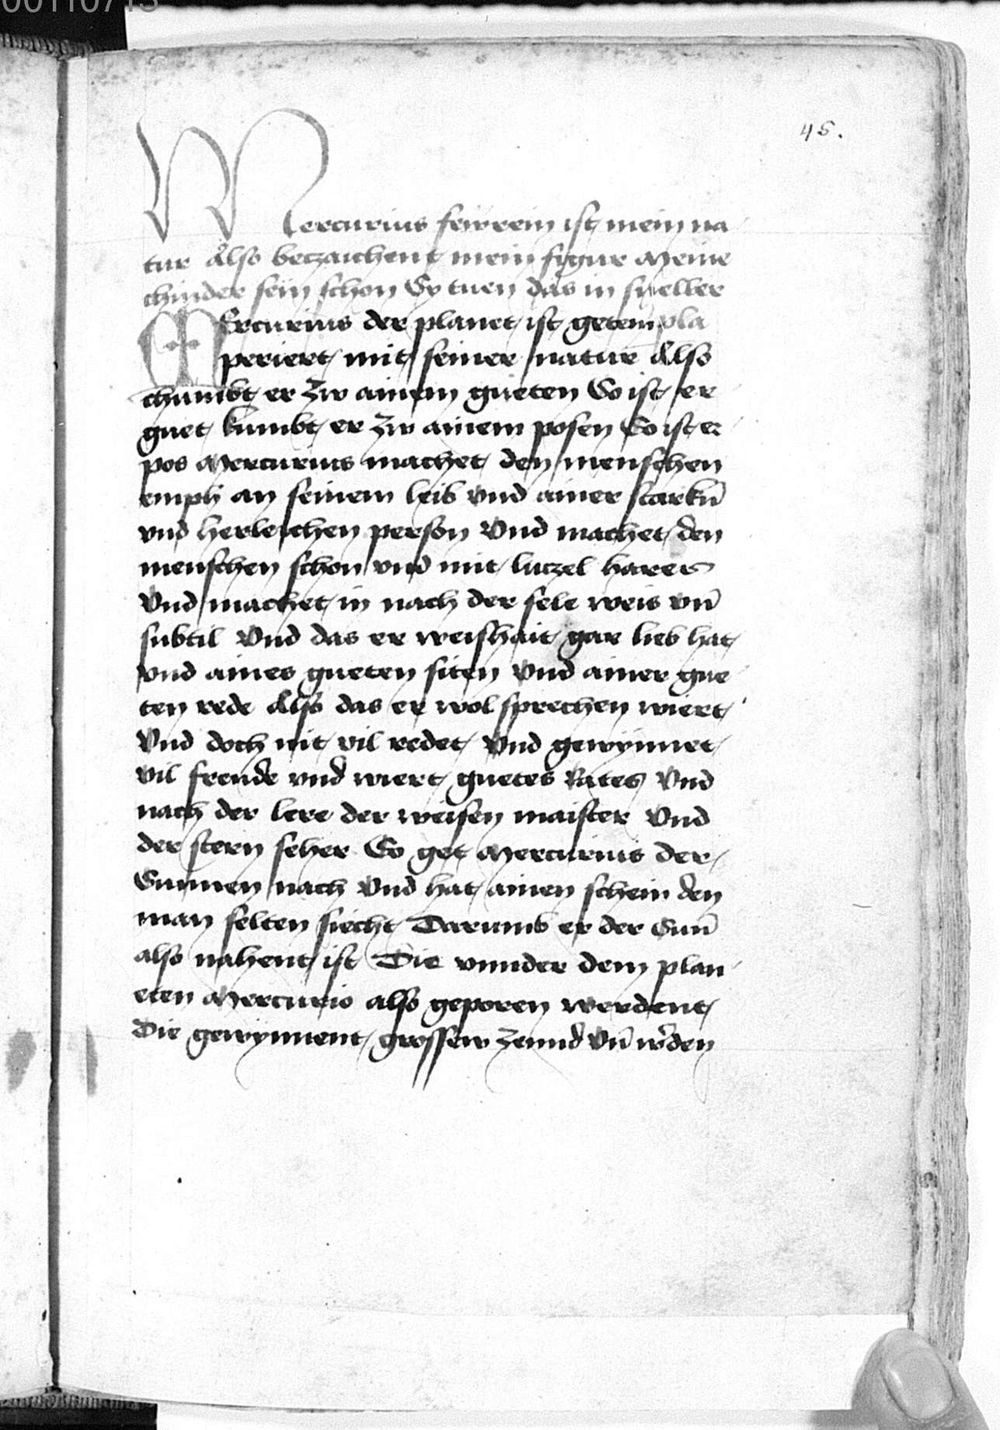 00110713
45.
Mercurius fewrein ist mein na
tur Also betzaichent mein figur Meine
chinder sein schon Sy tuen das in sneller
Mercurius der planet ist getem pla
periert mit seiner natur Also
chumbt er zw ainem gueten So ist er
guet kumbt er zw ainem posen So ist er
pos Mercurius machet den menschen
emph an seinem leib vnd ainer starkñ
vnd herleichen person Vnd machet den
menschen schon vnd mit lutzel harer
Vnd machet in nach der sele weis vñ
subtil Vnd das er weishait gar lieb hat
vnd aines gueten siten Vnd ainer gue
ten rede Also das er wol sprechen wiert
Vnd doch nit vil redet Vnd gewynnet
vil freude vnd wiert guetes Rates Vnd
nach der lere der weisen maister Vnd
der stern seher So get Mercurius der
Sunnen nach Vnd hat ainen schein den
man selten siecht Darumb er der Sunñ
also nahent ist Die vnnder dem plan
eten Mercurio also geporen werdent
Die gewynnent grossew zeund vñ wden